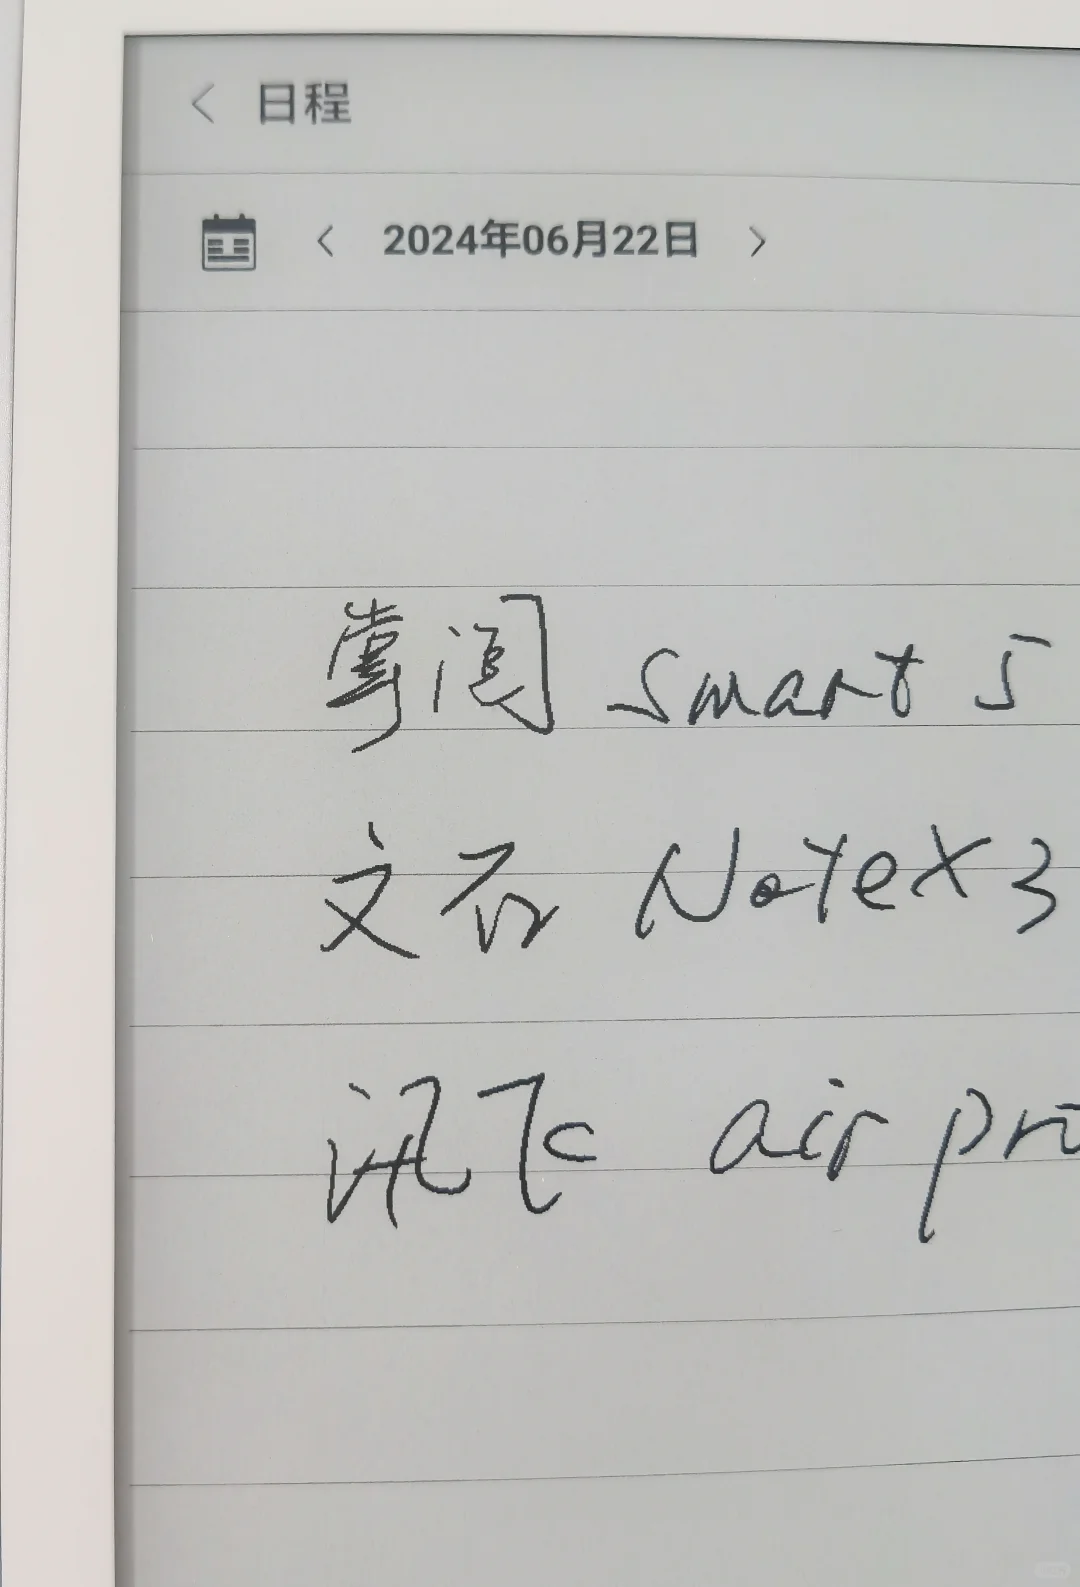 日程
2024年06月22日
掌阅 Smart 5
文石 NoteX3
讯飞 air pro